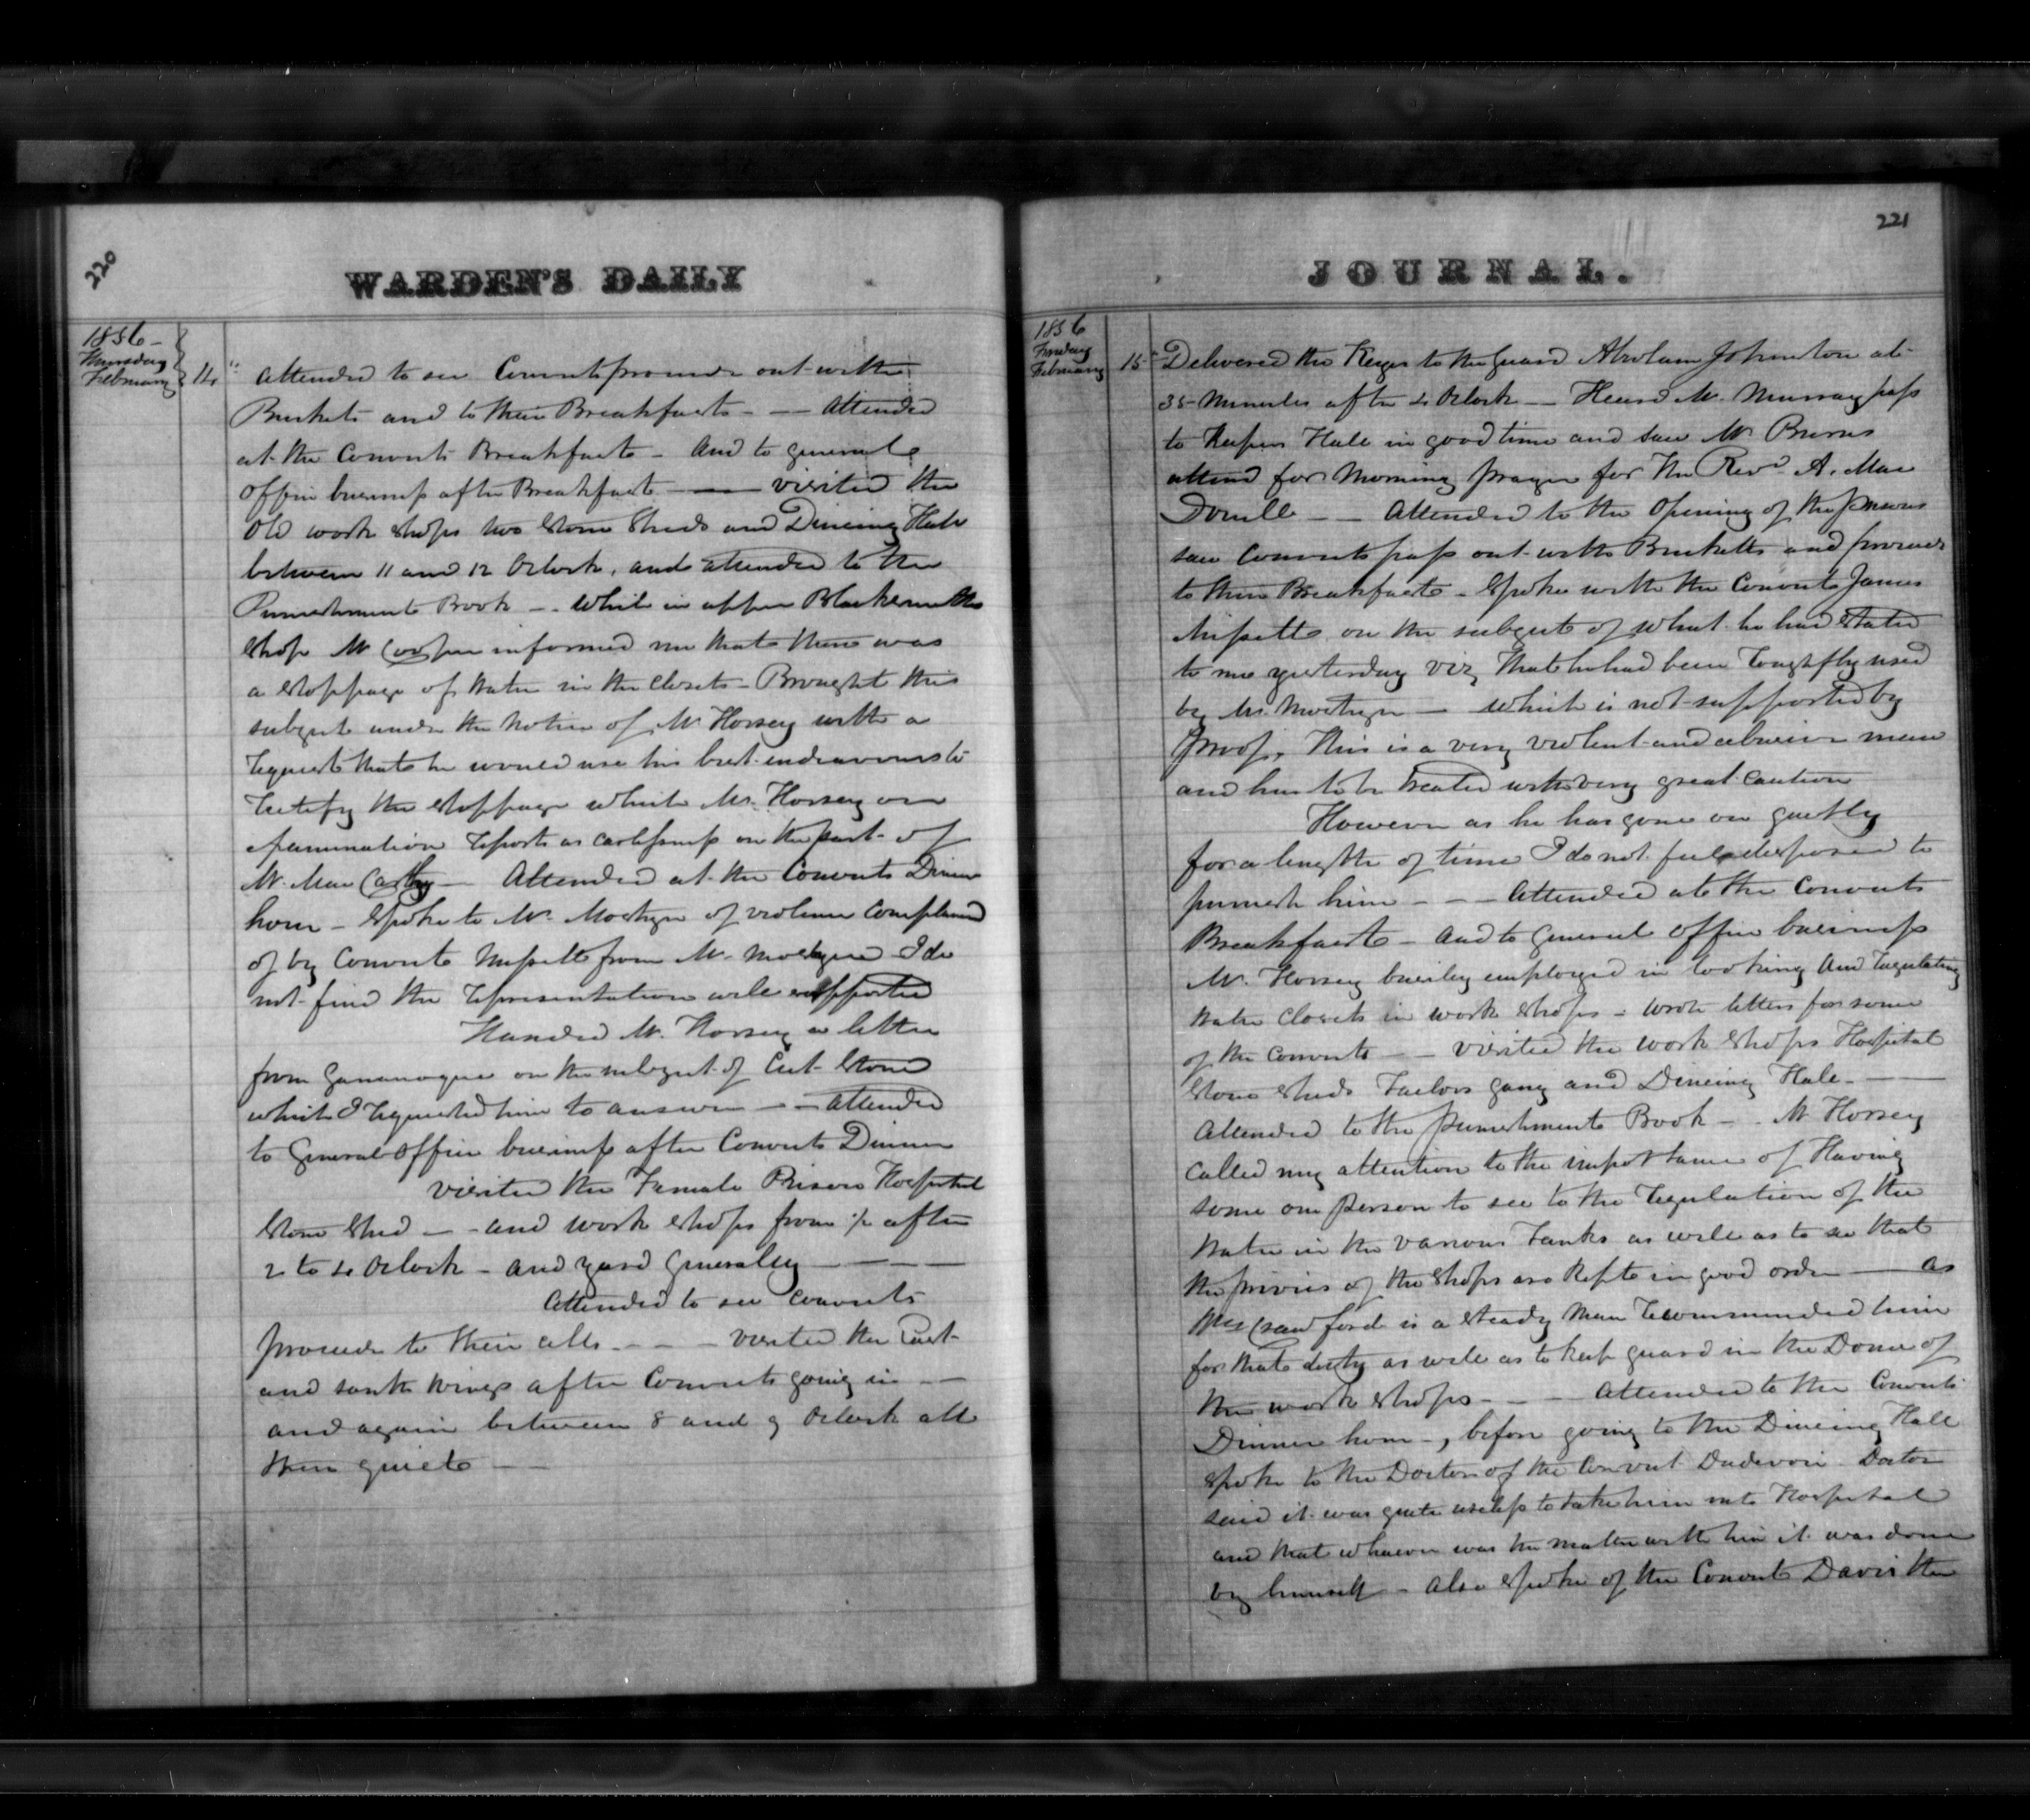 220
WARDEN'S DAILY
1856 -
Thursday
February 14
Attended to see Convicts proceed out with
Buckets and to their Breakfasts - — Attended
at the Convicts Breakfast - And to general
Office business after Breakfast — — visited the
Old work shops two Stone Sheds and Dineing Hall
between 11 and 12 Oclock, and attended to the
Punishment Book - . While in upper Blacksmiths
Shop Mr Cooper informed me that there was
a stoppage of water in the closets - Brought this
subject under the notice of Mr Horsey with a
request that he would use his best endeavours to
rectify the stoppage which Mr. Horsey on
examination reports as carlessness on the part of
Mr. MacCarthy — Attended at the Convicts Dinner
hour - Spoke to Mr. Mostyn of violence complained
of by Convict Missett from Mr. Mostyn I do
not find the representation well supported
Handed Mr. Horsey a letter
from Gananoque on the subject of Cut Stone
which I requested him to answer - - Attended
to General Office business after Convicts Dinner
visited the Female Prison Hospital
Stone Shed - - and work shops from ½ after
2 to 4 Oclock - and yard Generally — — —
Attended to see Convicts
proceed to their cells - - - visited the East
and south wings after Convicts going in - —
and again between 8 and 9 Oclock all
then quiet - —
221
JOURNAL.
1856
Friday
February 15
Delivered the Keys to the Guard Abraham Johnston at
35 Minutes after 4 Oclock — Heard Mr. Murray pass
to Keepers Hall in good time and saw Mr Burns
attend for Morning prayer for the Revd. A. Mac
Donell - — Attended to the Opening of the prisons
saw Convicts pass out with Bucketts and proceed
to their Breakfasts - Spoke with the Convict James
Missett on the subject of what he had stated
to me yesterday viz, that he had been roughfly used
by Mr. Mostyn — which is not supported by
proof. This is a very violent and abusive man
and has to be treated with very great caution
However as he has gone on quietly
for a length of time I do not feel disposed to
punish him - - - Attended at the Convicts
Breakfast - And to General Office business
Mr. Horsey busily employed in looking and regulating
water closets in work shops - wrote letters for some
of the convicts - — visited the work shops Hospital
Stone sheds Tailors gang and Dineing Hall - —
Attended to the punishment Book - . Mr Horsey
called my attention to the importance of Having
some one person to see to the regulation of the
water in the various Tanks as well as to see that
the privies of the shops are kept in good order — As
Crawford is a steady man recommended him
for that duty as well as to keep guard in the Dome of
the work shops - - - Attended to the Convicts
Dinner hour -, before going to the Dineing Hall
spoke to the Doctor of the Convict Doctor
said it was quite useless to take him into Hospital
and that whatever was the matter with him it was done
by himself - Also spoke of the Convict Davis the